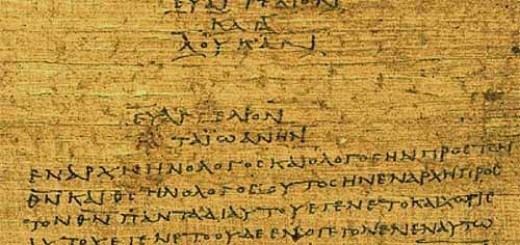 ΕΥΑΓΓΕΛΙΟΝ
ΚΑΤΑ
ΛΟΥΚΑΝ
ΕΥΑΓΓΕΛΙΟΝ
ΚΑΤΑΙΩΑΝΗΝ
ΕΝΑΡΧΗΗΝΟΛΟΓΟϹΚΑΙΟΛΟΓΟϹΗΝΠΡΟϹΤΟΝ
ΘΝΚΑΙΘϹΗΝΟΛΟΓΟϹΟΥΤΟϹΗΝΕΝΑΡΧΗΠΡΟϹ
ΤΟΝΘΝΠΑΝΤΑΔΙΑΥΤΟΥΕΓΕΝΕΤΟΚΑΙΧΩΡΙϹ
ΑΥΤΟΥΕΓΕΝΕΤΟΟΥΔΕΕΝΟΓΕΓΟΝΕΝΕΝΑΥΤΩ